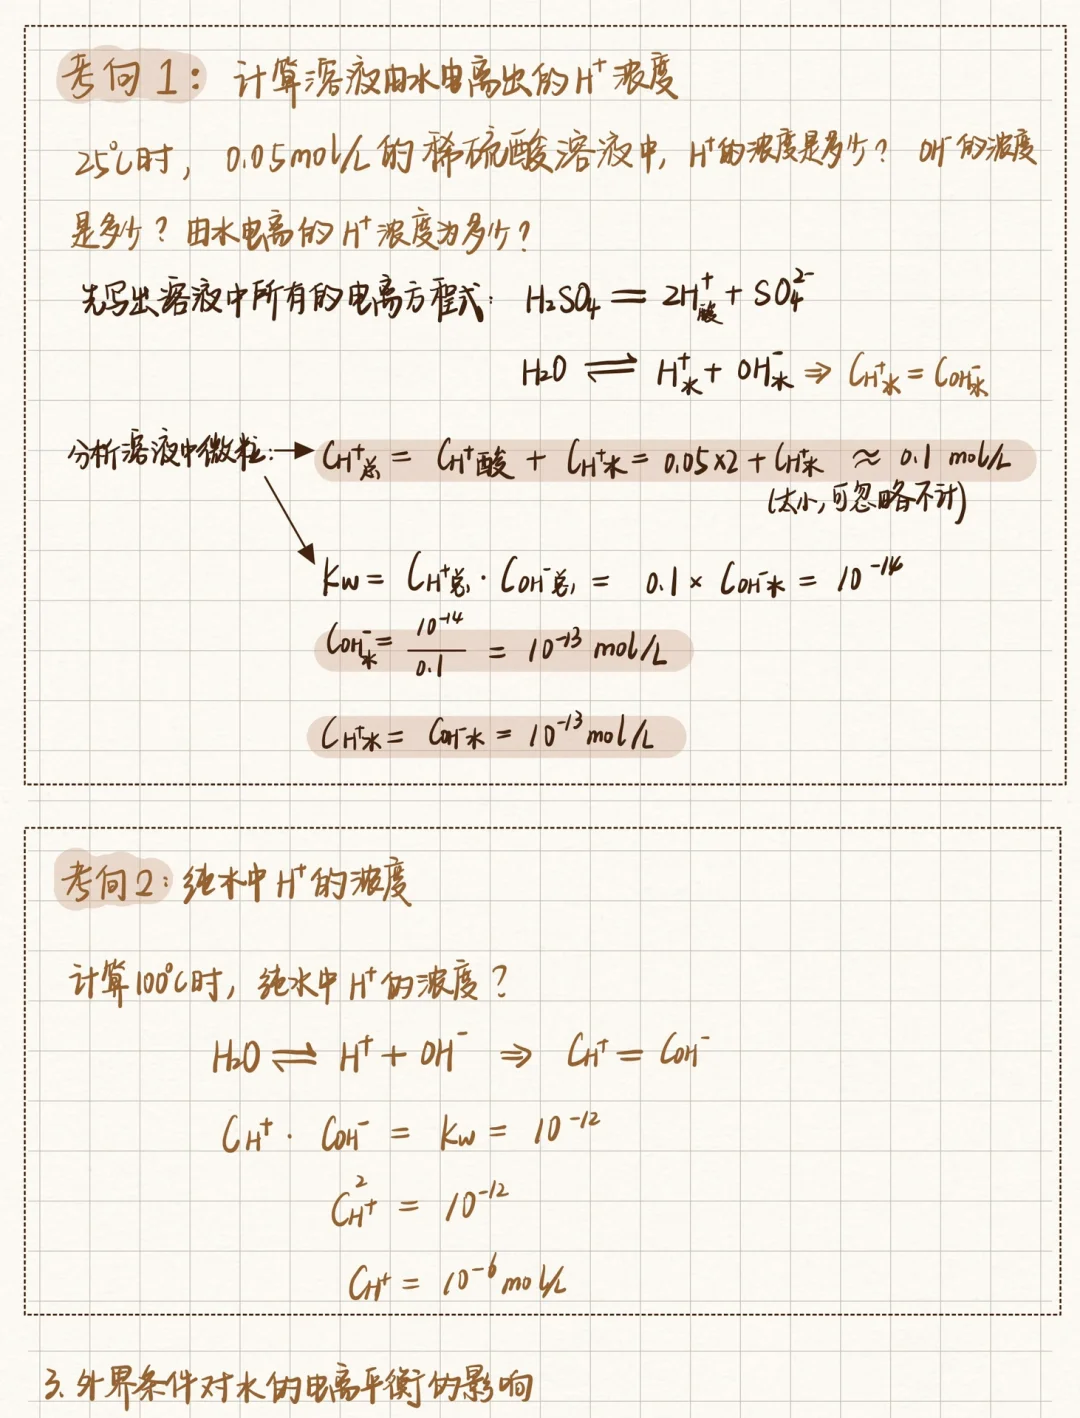 考向1：计算溶液由水电离出的H⁺浓度
25℃时，0.05mol/L的稀硫酸溶液中，H⁺的浓度是多少？ OH⁻的浓度
是多少？由水电离的H⁺浓度为多少？
先写出溶液中所有的电离方程式： H₂SO₄ = 2H⁺酸 + SO₄²⁻
H₂O ⇌ H⁺水 + OH⁻水 ⇒ CH⁺水 = COH⁻水
分析溶液中微粒：→ CH⁺总 = CH⁺酸 + CH⁺水 = 0.05×2 + CH⁺水 ≈ 0.1 mol/L
(太小，可忽略不计)
Kw = CH⁺总 · COH⁻总 = 0.1 × COH⁻水 = 10⁻¹⁴
COH⁻水 = 10⁻¹⁴/0.1 = 10⁻¹³ mol/L
CH⁺水 = COH⁻水 = 10⁻¹³ mol/L
考向2：纯水中H⁺的浓度
计算100℃时，纯水中H⁺的浓度？
H₂O ⇌ H⁺ + OH⁻ ⇒ CH⁺ = COH⁻
CH⁺ · COH⁻ = Kw = 10⁻¹²
C²H⁺ = 10⁻¹²
CH⁺ = 10⁻⁶ mol/L
3. 外界条件对水的电离平衡的影响